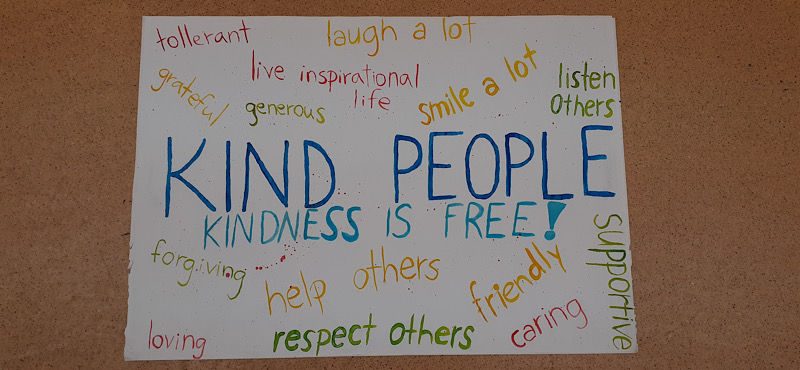 tollerant
laugh a lot
live inspirational
life
grateful
generous
smile a lot
listen
others
KIND PEOPLE
KINDNESS IS FREE!
forgiving
help others
friendly
supportive
loving
respect others
caring